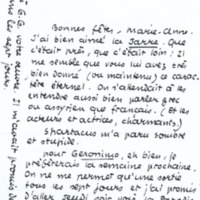 Bonnes fêtes, Marie-Ann.
J'ai bien aimé la Sarre. Que
c'était près, que c'était loin : il
me semble que vous lui avez très
bien donné (ou maintenu) ce carac-
tère éternel. On s'attendait à les
entendre aussi bien parler grec
ou assyrien que français. (Et les
acteurs et actrices, charmants).
Spartacus m'a paru sombre
et stupide.
Pour Geronimo, eh bien, je
préférerais la semaine prochaine.
On ne me permet qu'une sortie
tous les sept jours et j'ai promis
D'aller jeudi soir voir la
tous les sept jours.
G.G. votre
Il m'avait promis de